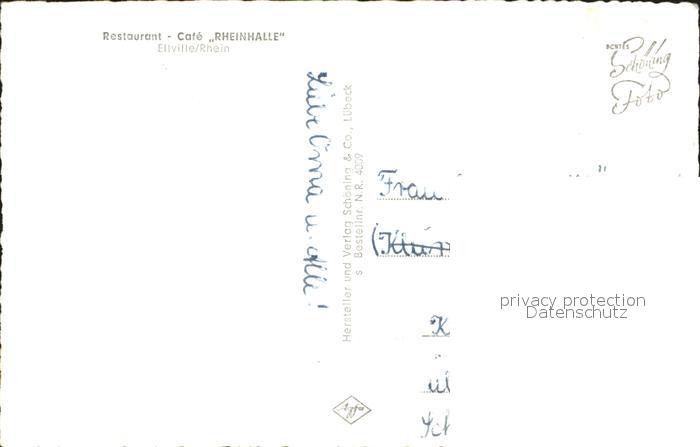 Restaurant - Café „RHEINHALLE"
Eltville/Rhein
ECHTES
Schöning
Foto
Liebe Oma u. Alle!
Hersteller und Verlag Schöning & Co., Lübeck
s Bestellnr. N.R. 4009
Frau
privacy protection
Datenschutz
K
ü
Sch
Agfa